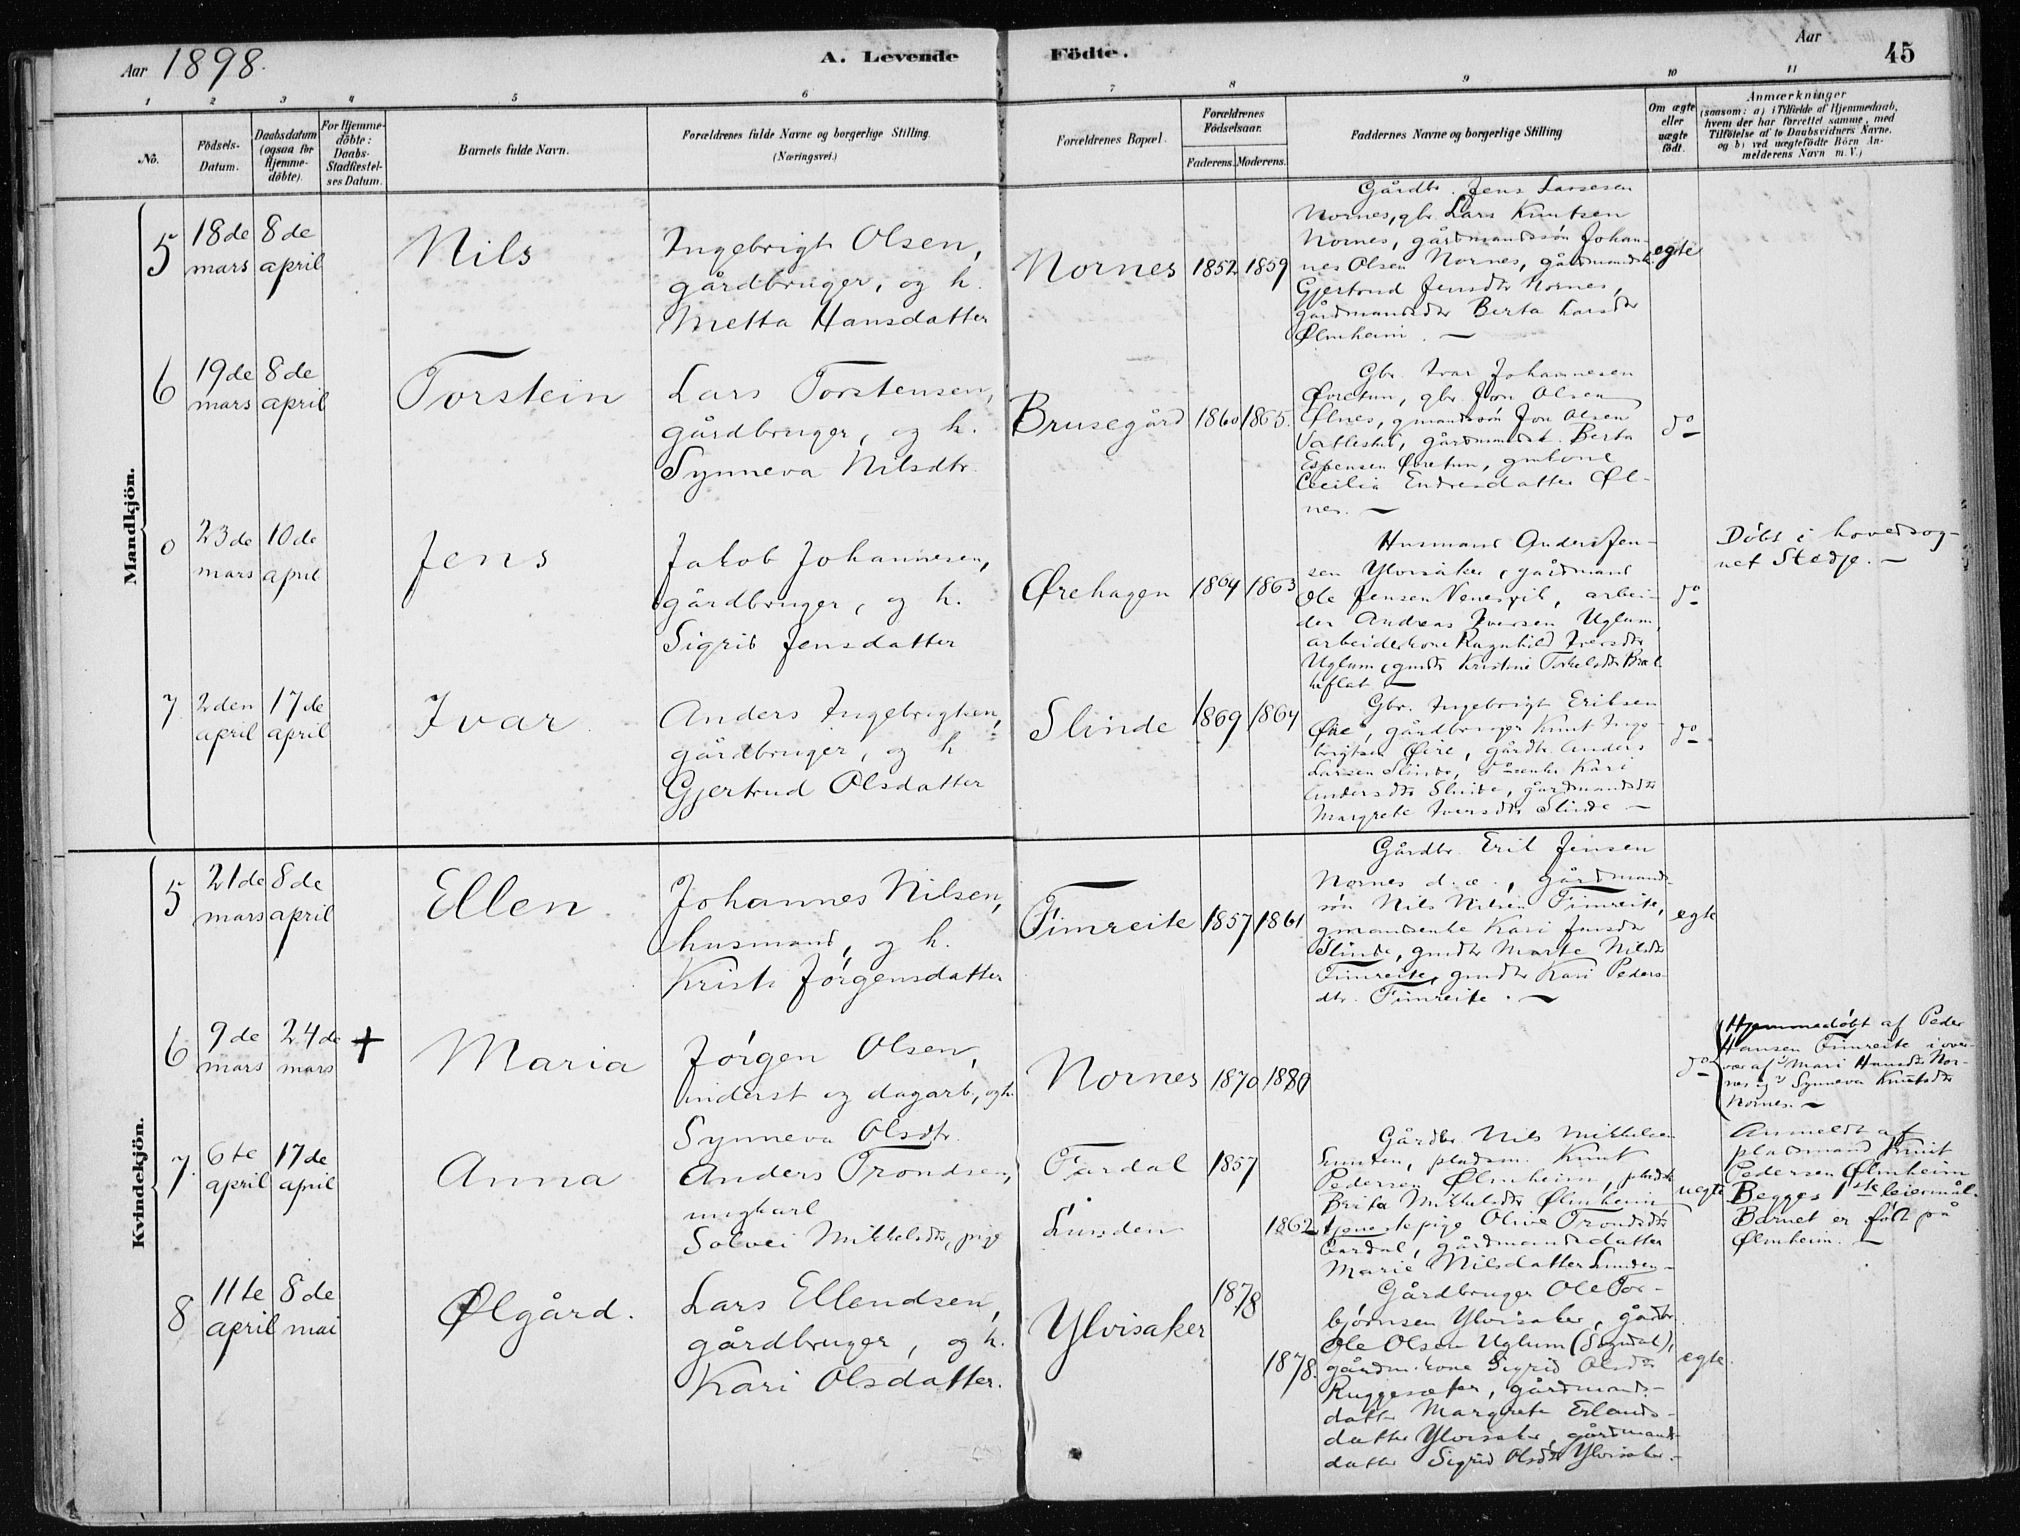 Aar 1898.
A. Levende
Födte.
Aar
45
1 2 3 4 5 6 7 8 9 10 11
No.
Födsels-Datum.
Daabsdatum (ogsaa for Hjemme-döbte).
For Hjemme-döbte: Daabs-Stadfæstel-ses Datum.
Barnets fulde Navn.
Forældrenes fulde Navne og borgerlige Stilling.
(Næringsvei.)
Forældrenes Bopæl.
Forældrenes Födselsaar.
Faderens. Moderens.
Faddernes Navne og borgerlige Stilling
Om ægte eller uægte födt.
Anmærkninger
(saasom: a) i Tilfælde af Hjemmedaab,
hvem der har forrettet samme, med
Tilföielse af to Daabsvidners Navne.
og b) ved uægtefödte Börn An-
melderens Navn m. V.)
Mandkjön.
5
18de mars
8de april
Nils
Ingebrigt Olsen,
gårdbruger, og h.
Metta Hansdatter
Nornes
1852
1859
Gårdbr. Jens Larsesen
Nornes, gbr. Lars Knutsen
Nornes, gårdmandssön Johan-
nes Olsen Nornes, gårdmandsk.
Gjertrud Jensdtr Nornes,
gårdmandsdtr Berta Larsdtr
Ølmheim. —
egte
6
19de mars
8de april
Torstein
Lars Torstensen,
gårdbruger, og h.
Synneva Nilsdtr.
Brusegård
1860
1865.
Gbr. Ivar Johannesen
Øvretun, gbr. Jon Olsen
Ølnes, gmandssön Jon Olsen
gårdmandsk. Berta
Espensen Øvretun, gmkone
Cecilia Endresdatter Øl-
nes. —
do
0
23de mars
10de april
Jens
Jakob Johannesen,
gårdbruger, og h.
Sigrid Jensdatter
Ørehagen
1864
1863
Husmand Anders Jen-
sen Ylvisaker, gårdmand
Ole Jensen Venesvil, arbei-
der Andreas Iversen Uglum,
arbeiderkone Ragnhild Iversdtr
Uglum, gmdtr Kristine Torkelsdtr
do
Döbt i hovedsog-
net Stedje. —
7
2den april
17de april
Ivar
Anders Ingebrigtsen,
gårdbruger, og h
Gjertrud Olsdatter
Slinde
1869
1864
Gbr. Ingebrigt Eriksen
Øvre, gårdbruger Knut Inge-
brigtsen Øvre, gårdbr. Anders
Larsen Slinde, Kari
Andersdtr Slinde, gårdmandsdtr
Margrete Iversdtr Slinde —
do
Kvindekjön.
5
21de mars
8de april
Ellen
Johannes Nilsen,
husmand, og h.
Kristi Jörgensdatter
Fimreite
1857
1861
Gårdbr. Erik Jensen
Nornes d. æ., gårdmands-
sön Nils Nilsen Fimreite,
gmandsenke Kari Jensdtr
Slinde, gmdtr Marte Nilsdtr
Fimreite, gmdtr Kari Peders-
dtr. Fimreite. —
egte
6
9de mars
24de mars
+
Maria
Jörgen Olsen,
inderst og dagarb., og h.
Synneva Olsdtr.
Nornes
1870
do
Hjemmedöbt af Peder
Hansen Fimreite i over-
vær af Mari Hansdtr Nor-
nes og Synneva Knutsdtr
Nornes. —
7.
6te april
17de april
Anna
Anders Trondsen,
ungkarl
Solvei Mikkelsdtr, pige
Fardal
Lunden
1857
1862
Gårdbr. Nils Mikkelsen
Lunden, pladsm. Knut
Pedersen Ølmheim, pladsk
Brita Mikkelsdtr Ølmheim
tjenestepige Olive Trondsdtr
Fardal, gårdmandsdatter
Marie Nilsdatter Lunden —
uegte
Anmeldt af
pladsmand Knut
Pedersen Ølmheim
Begges 1ste leiermål.
Barnet er födt på
Ølmheim. —
8
11te april
8de mai
Ølgård.
Lars Ellendsen,
gårdbruger, og h.
Kari Olsdatter.
Ylvisaker
1878
1878.
Gårdbruger Ole Tor-
björnsen Ylvisaker, gårdbr.
Ole Olsen Uglum (Sogndal),
gårdm.kone Sigrid Olsdtr
Ruggesæter, gårdmands-
datter Margrete Erlands-
datter Ylvisaker, gårdmands-
datter Sigrid Olsdtr Ylvisaker. —
egte.